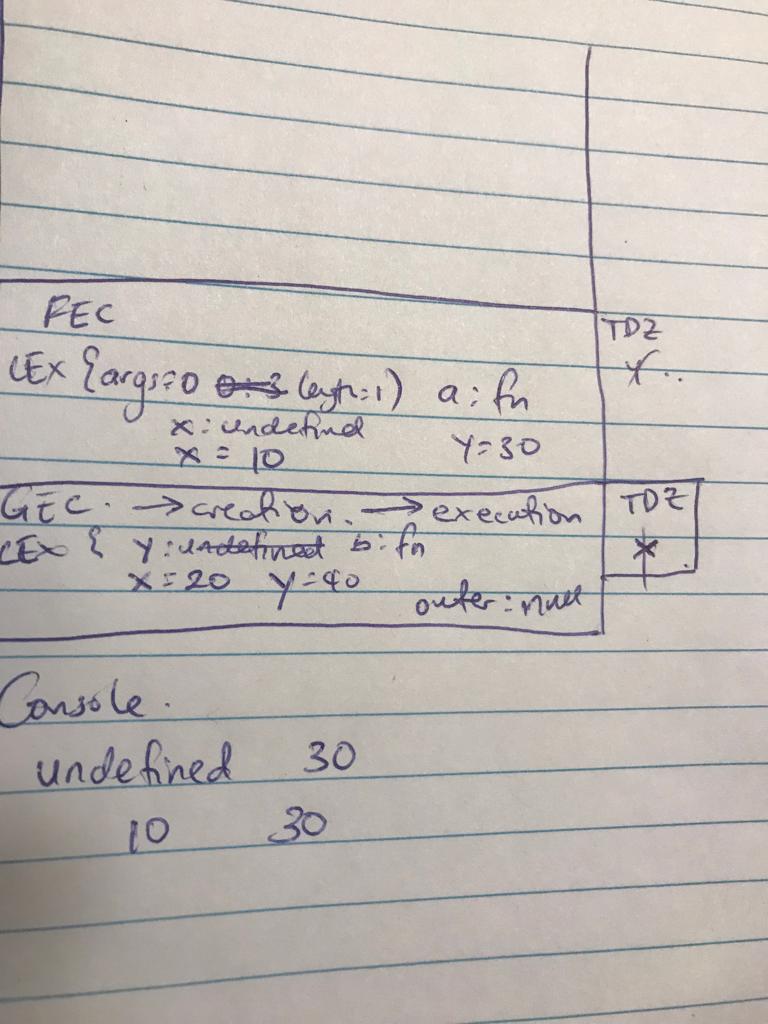 FEC
TDZ
LEX { args:0 0:3 length:1) a: fn
Y..
x: undefined
x = 10 Y=30
GEC. → creation. → execution
TDZ
LEX { y: undefined b: fn
x
x = 20 y=40
outer: null
Console.
undefined 30
10 30